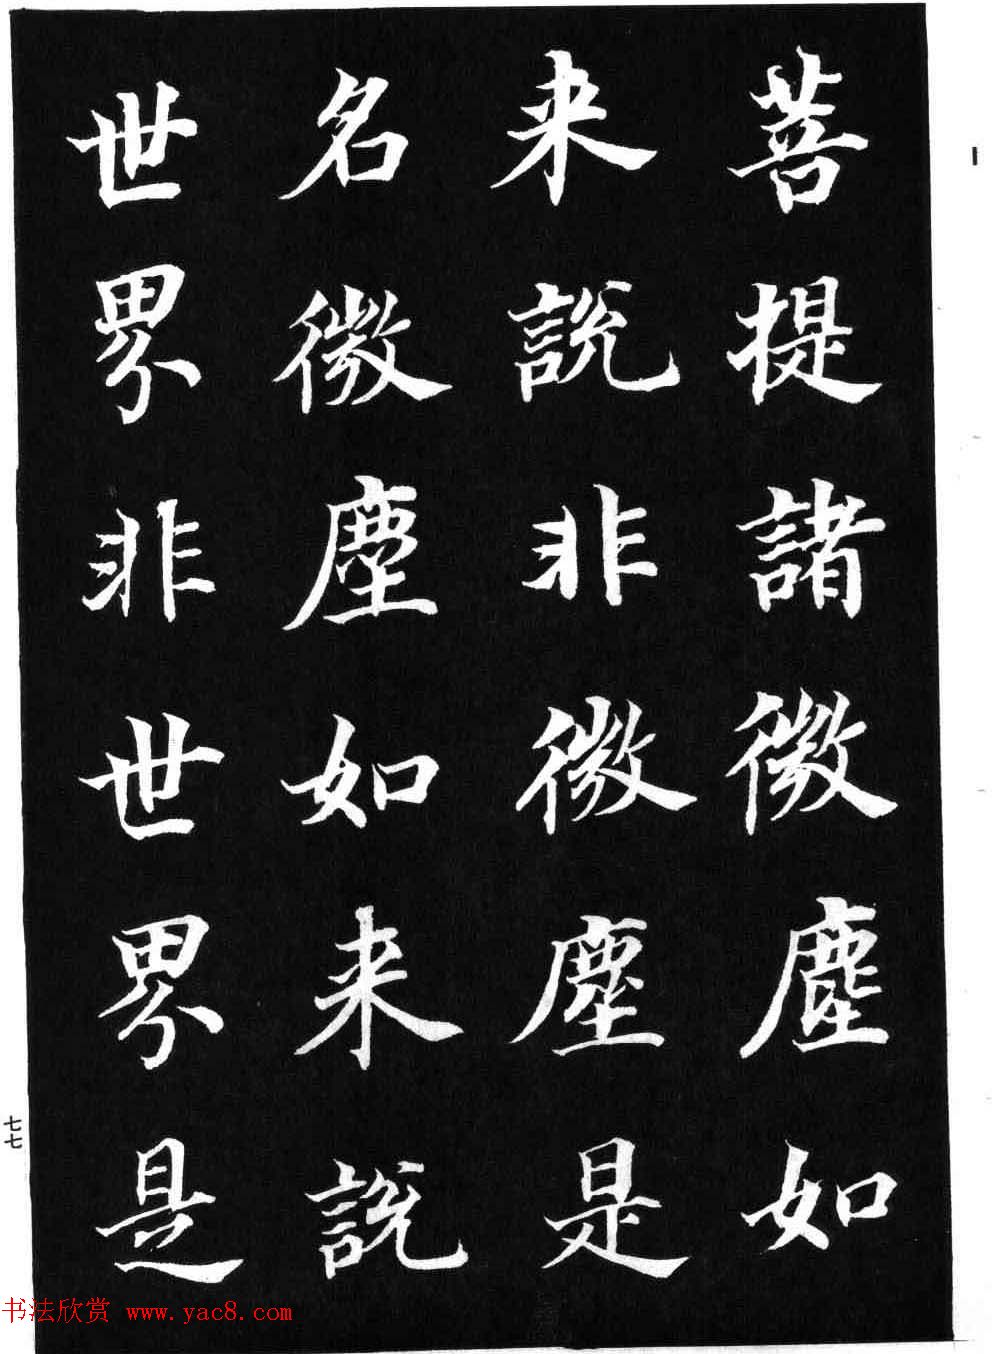 菩提諸微塵如
来説非微塵是
名微塵如来説
世界非世界是
七七
书法欣赏 www.yac8.com